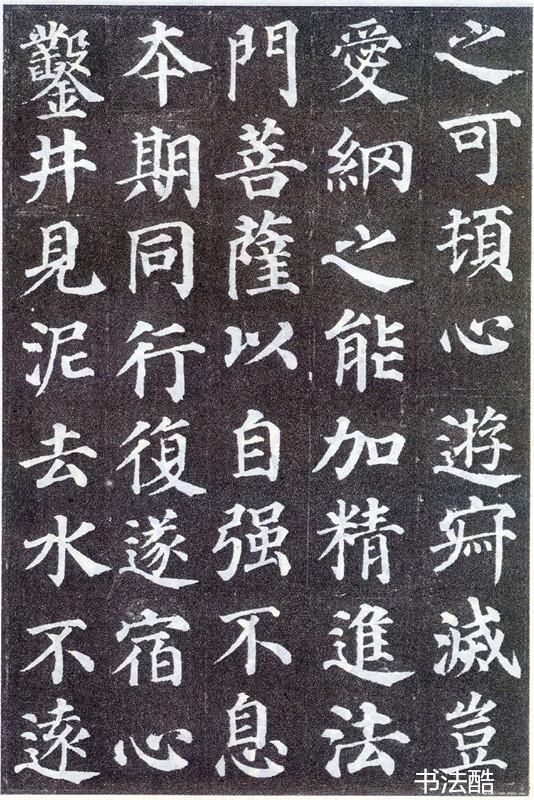 之可頓心遊寂滅豈
愛網之能加精進法
門菩薩以自强不息
本期同行復遂宿心
鑿井見泥去水不遠
书法酷